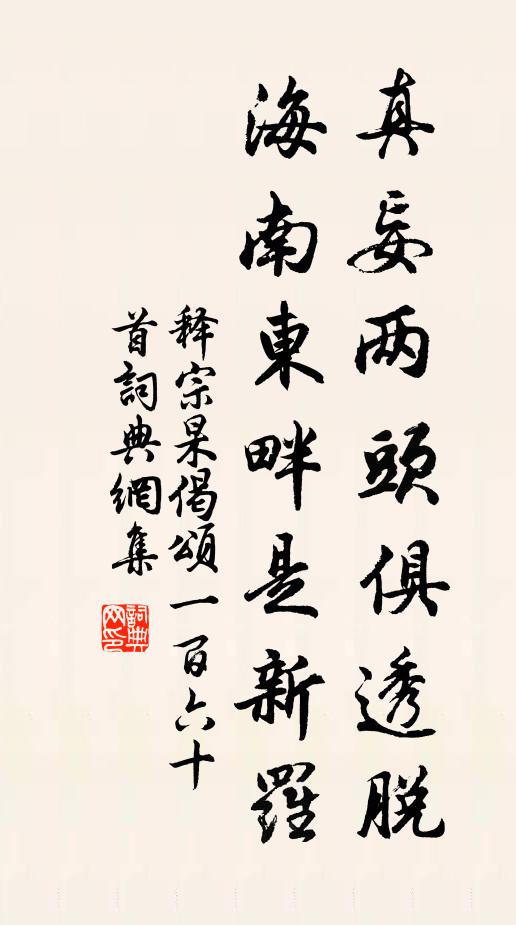 真妄两頭俱透脱
海南東畔是新羅
释宗杲偈頌一百六十
首詞典網集
詞典網印